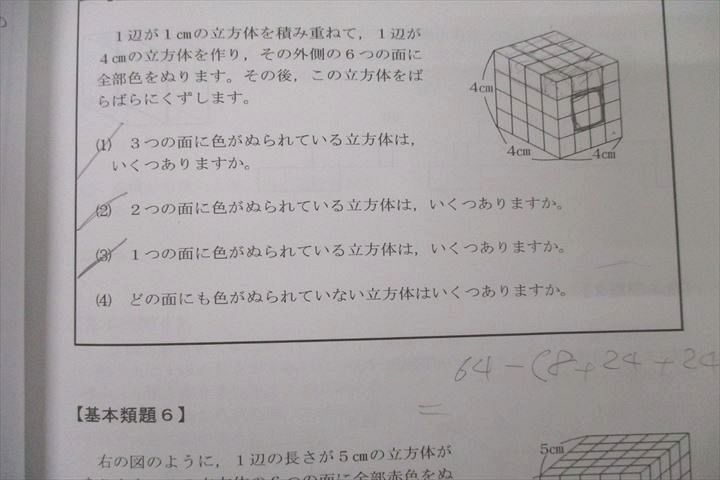 1辺が1cmの立方体を積み重ねて，1辺が
4cmの立方体を作り，その外側の6つの面に
全部色をぬります。その後，この立方体をば
らばらにくずします。
4cm
4cm
4cm
(1) 3つの面に色がぬられている立方体は，
いくつありますか。
(2) 2つの面に色がぬられている立方体は，いくつありますか。
(3) 1つの面に色がぬられている立方体は，いくつありますか。
(4) どの面にも色がぬられていない立方体はいくつありますか。
64-(8+24+24
=
【基本類題6】
右の図のように，1辺の長さが5cmの立方体が
5cm